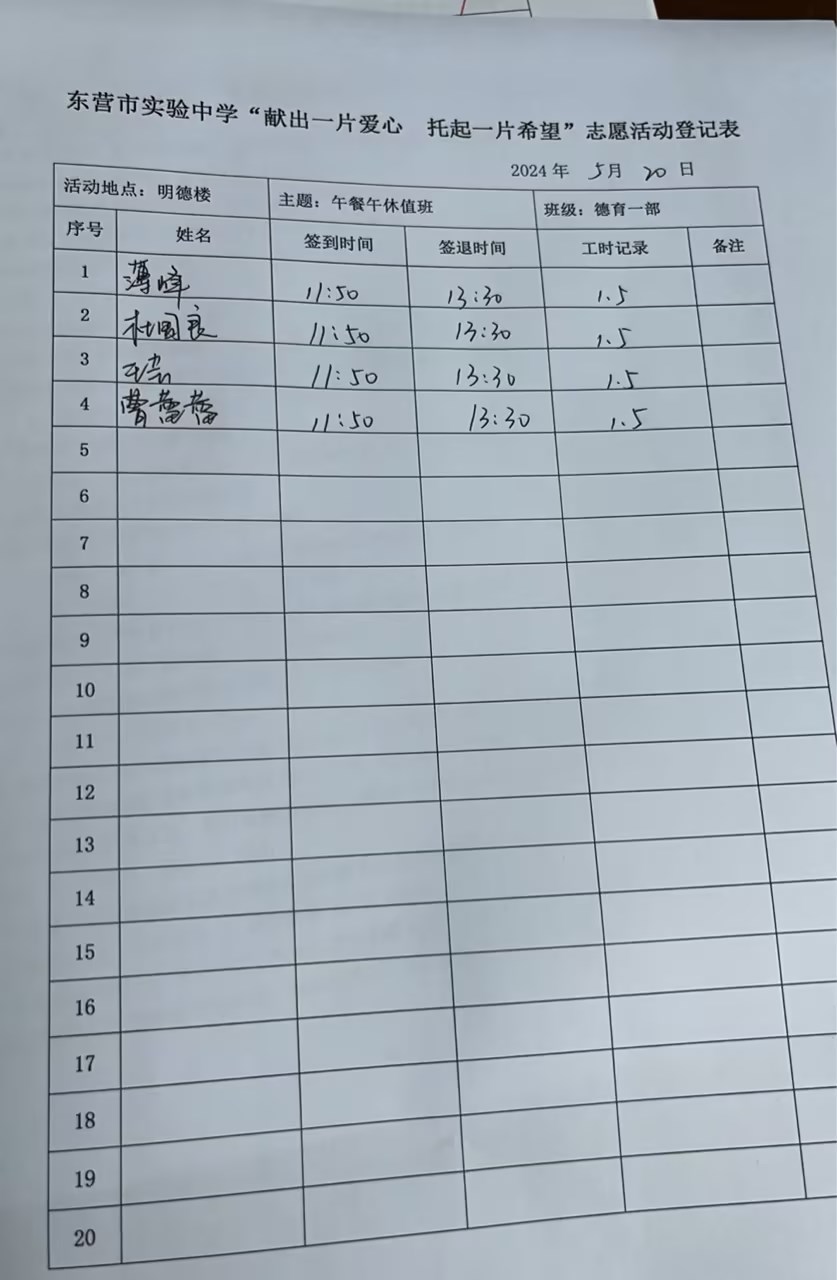 东营市实验中学“献出一片爱心 托起一片希望”志愿活动登记表
2024 年 5月 20 日
活动地点：明德楼 主题：午餐午休值班 班级：德育一部
序号 姓名 签到时间 签退时间 工时记录 备注
1 薄峰 11:50 13:30 1.5
2 杜国良 11:50 13:30 1.5
3 11:50 13:30 1.5
4 曹蕾蕾 11:50 13:30 1.5
5
6
7
8
9
10
11
12
13
14
15
16
17
18
19
20